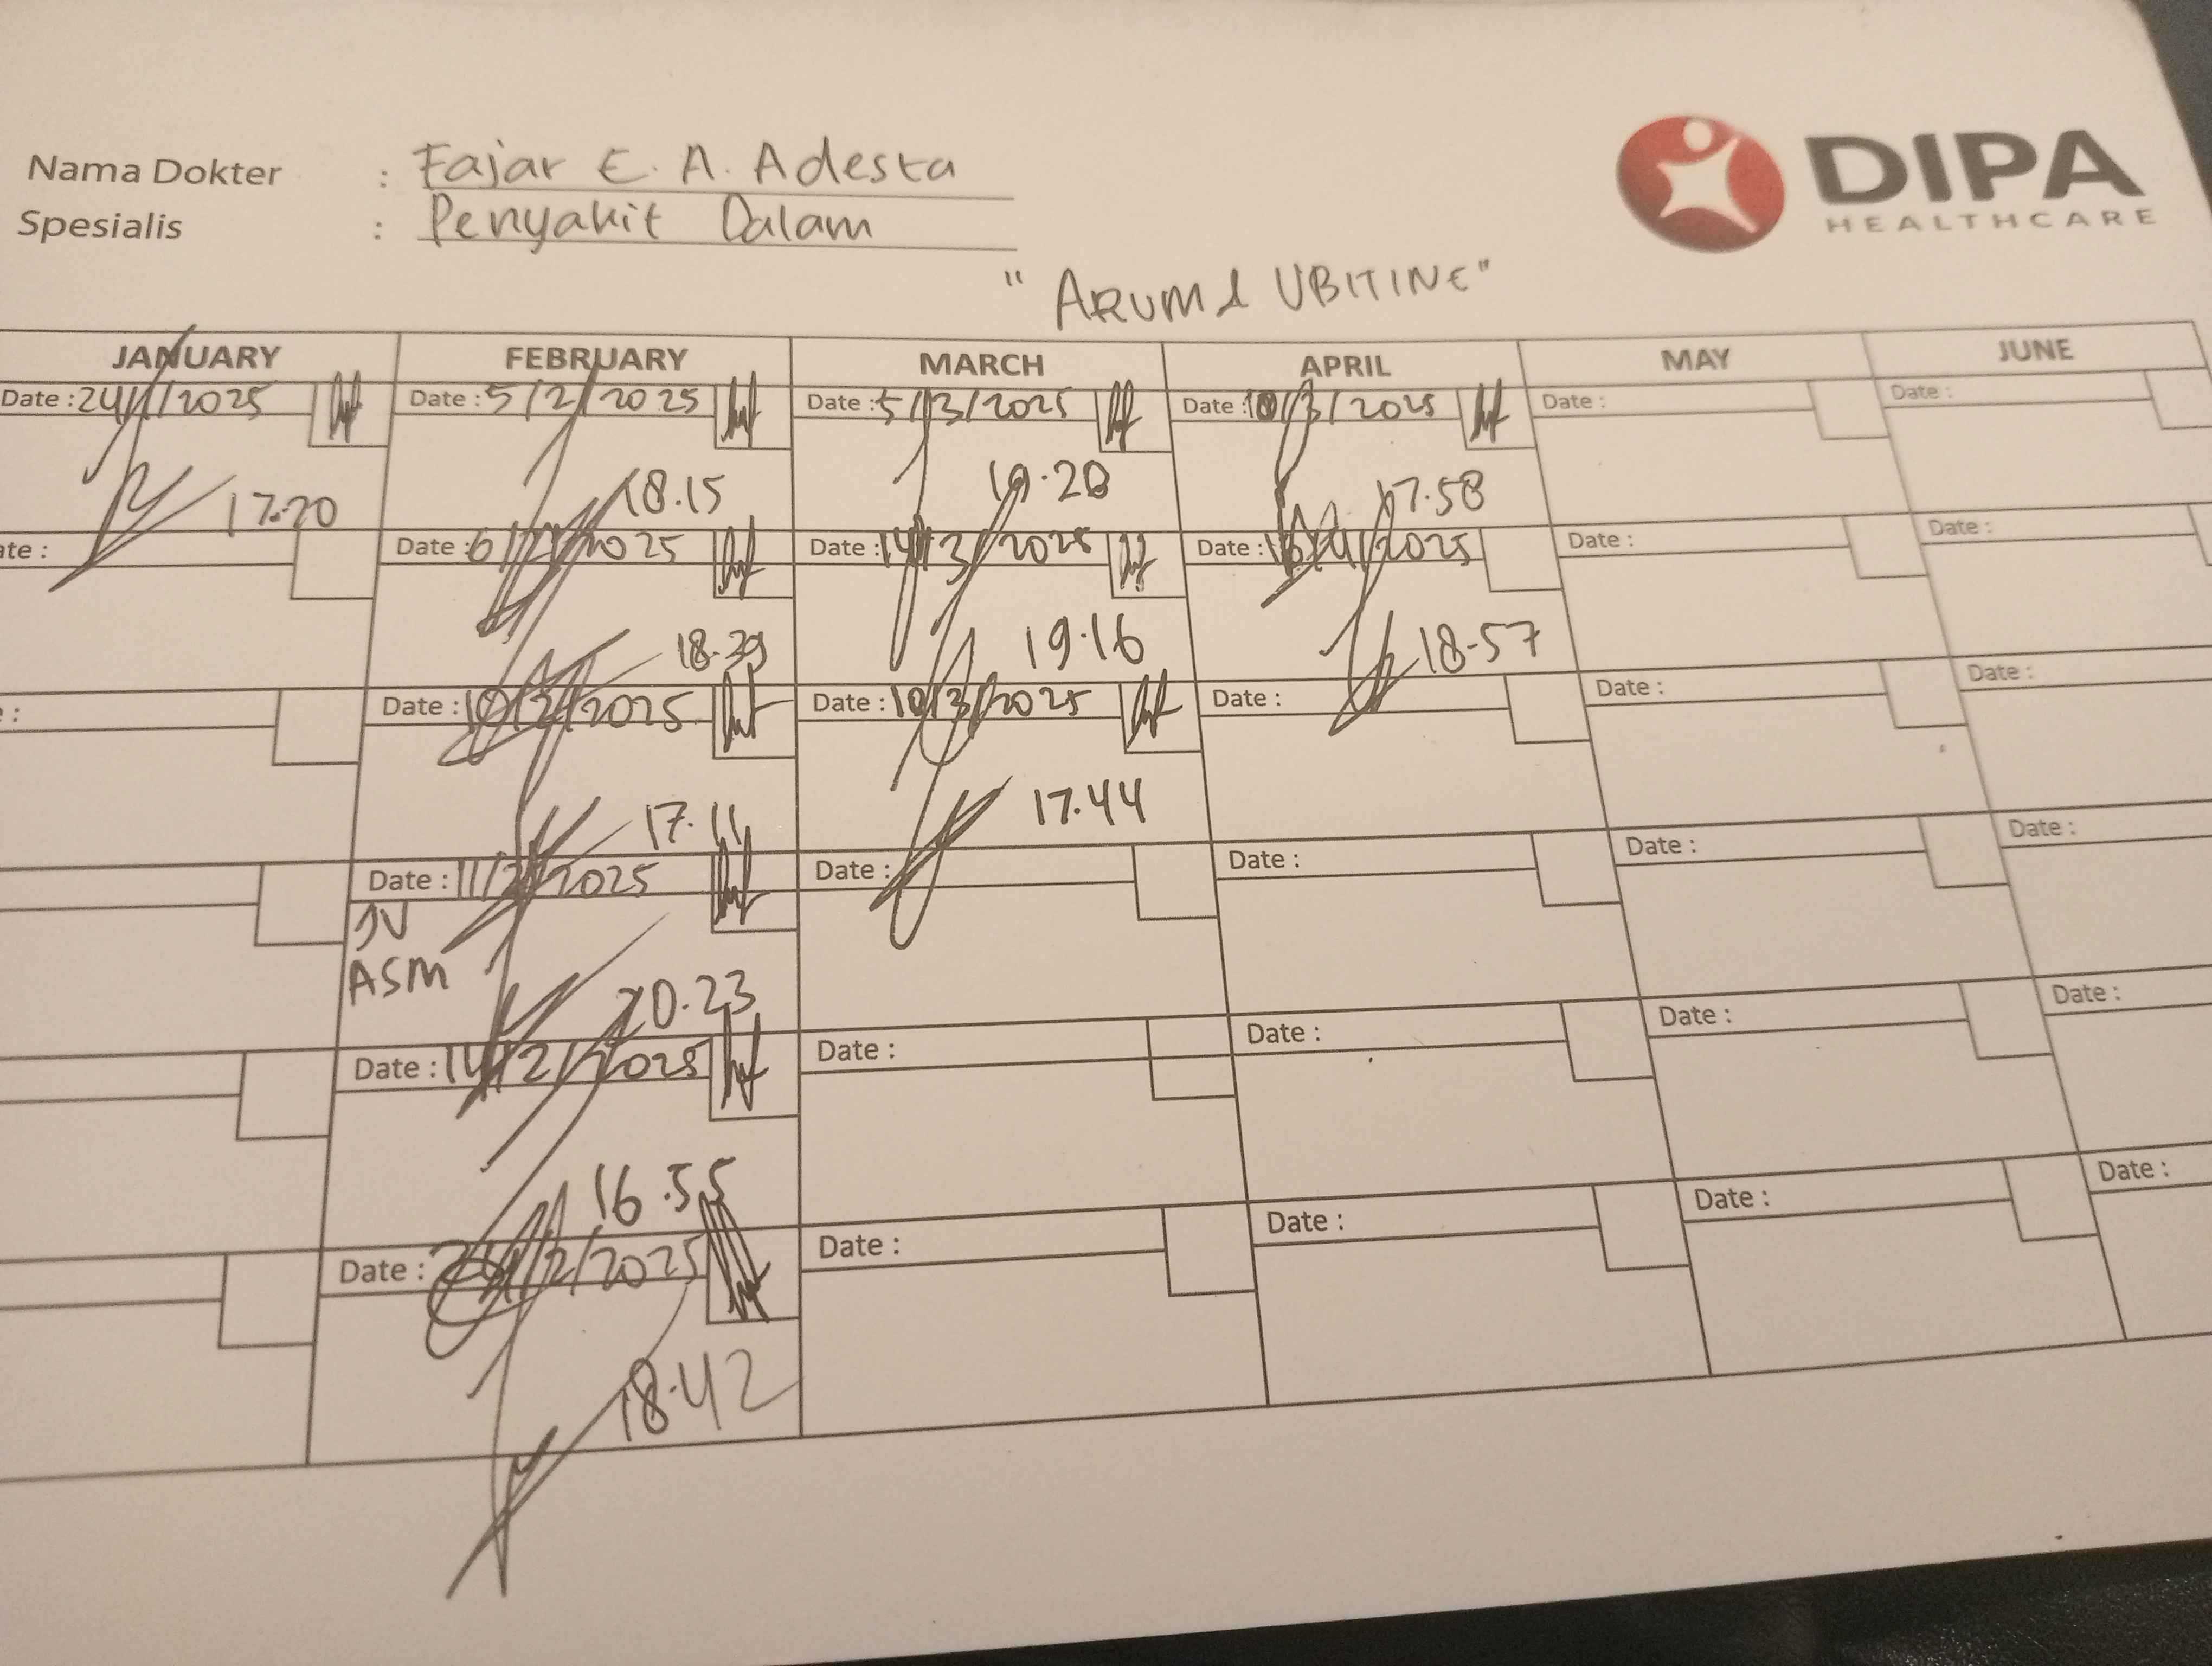 Nama Dokter : Fajar E. A. Adesta
Spesialis : Penyakit Dalam
DIPA
HEALTHCARE
"ARUM & UBITINE"
JANUARY FEBRUARY MARCH APRIL MAY JUNE
Date : 24/1/2025 Date : 5/2/2025 Date : 5/3/2025 Date : Date : Date :
17.20 18.15 19.20 17.58
ate : Date : 6/2/2025 Date : 14/3/2025 Date : Date : Date :
18.39 19.16 18.57
: Date : 10/2/2025 Date : 10/3/2025 Date : Date : Date :
17.11 17.44
Date : 11/2/2025 Date : Date : Date : Date :
JV
ASM
20.23
Date : 14/2/2025 Date : Date : Date : Date :
16.55
Date : 24/2/2025 Date : Date : Date : Date :
18.42